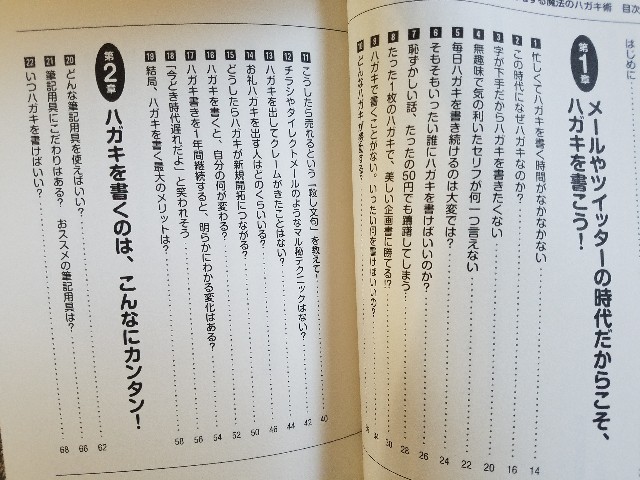 する魔法のハガキ術　目次
はじめに
第1章
メールやツイッターの時代だからこそ、
ハガキを書こう！
1 忙しくてハガキを書く時間がなかなかない 14
2 この時代になぜハガキなのか？ 16
3 字が下手だからハガキを書きたくない 20
4 無趣味で気の利いたセリフが何一つ言えない 22
5 毎日ハガキを書き続けるのは大変では？ 24
6 そもそもいったい誰にハガキを書けばいいのか？ 26
7 恥ずかしい話、たったの50円でも躊躇してしまう 28
8 たった1枚のハガキで、美しい企画書に勝てる!? 30
9 ハガキで書くことがない。いったい何を書けばいいの？
10 どんなハガキが
11 こうしたら売れるという「殺し文句」を教えて！ 40
12 チラシやダイレクトメールのようなマル秘テクニックはない？ 42
13 ハガキを出してクレームがきたことはない？ 44
14 お礼ハガキを出す人はどのくらいいる？ 46
15 どうしたらハガキが新規開拓につながる？ 50
16 ハガキを書くと、自分の何が変わる？ 52
17 ハガキ書きを1年間継続すると、明らかにわかる変化はある？ 54
18 「今どき時代遅れだよ」と笑われそう 56
19 結局、ハガキを書く最大のメリットは？ 58
第2章
ハガキを書くのは、こんなにカンタン！
20 どんな筆記用具を使えばいい？ 62
21 筆記用具にこだわりはある？　おススメの筆記用具は？ 66
22 いつハガキを書けばいい？ 68